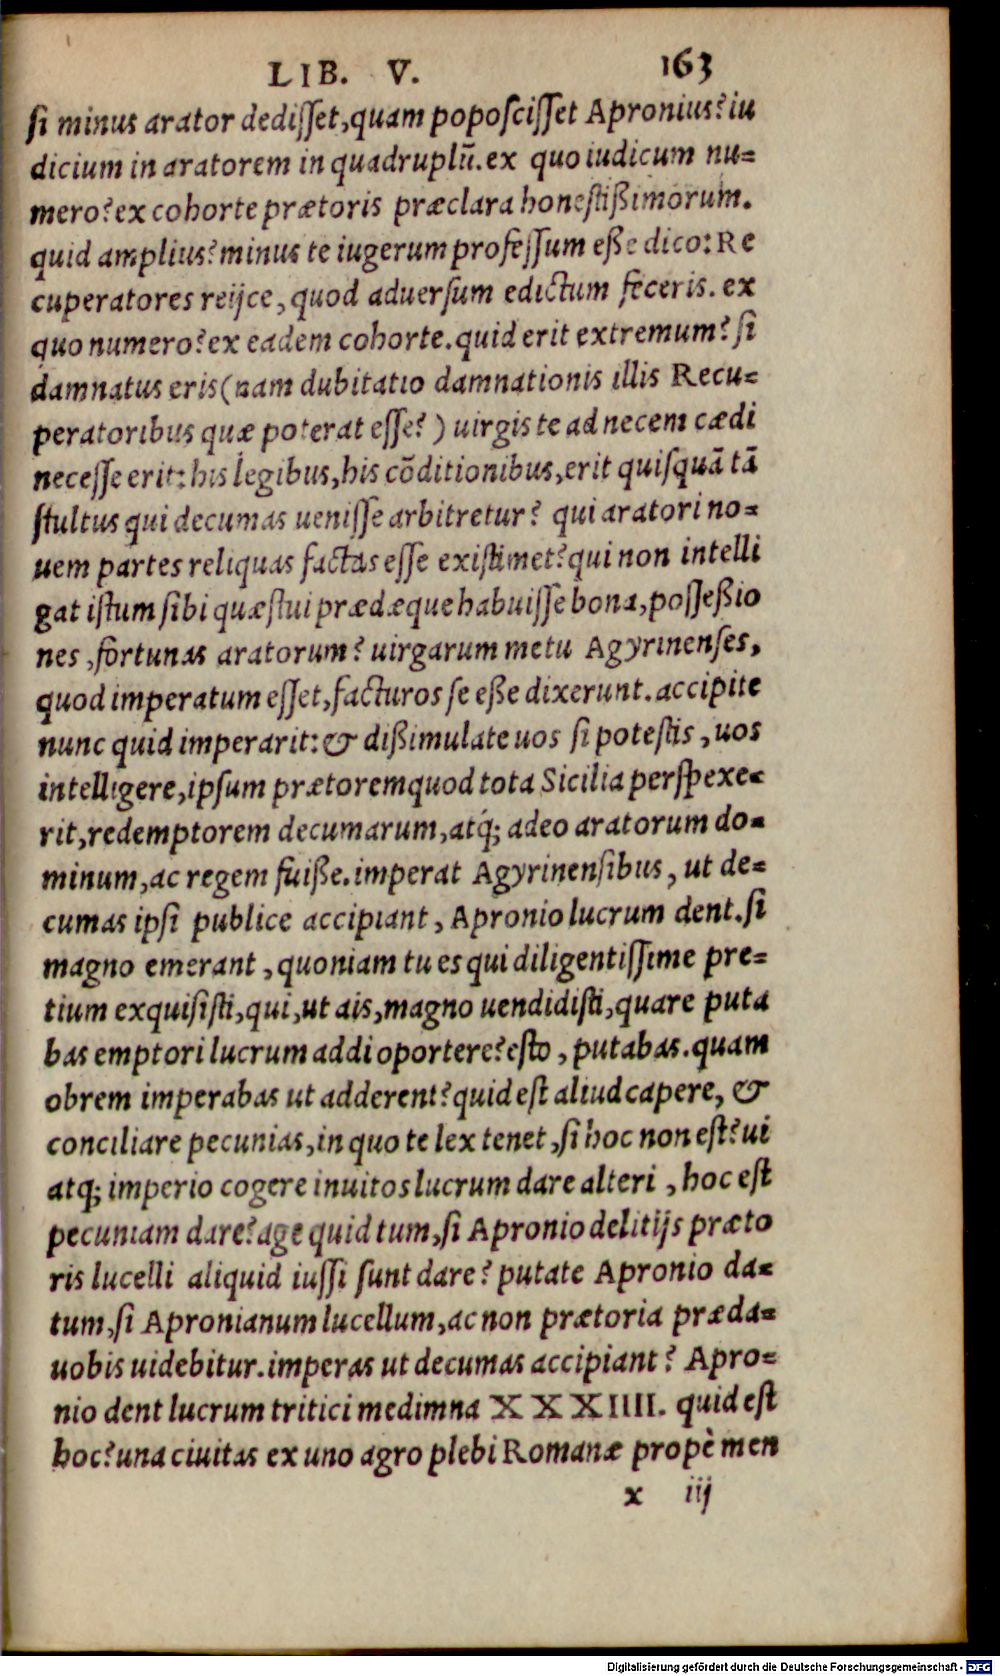 LIB. V. 163
si minus arator dedisset,quam poposcisset Apronius?iu
dicium in aratorem in quadruplū.ex quo iudicum nu=
mero?ex cohorte prætoris præclara honestißimorum.
quid amplius?minus te iugerum professum eße dico:Re
cuperatores reijce,quod aduersum edictum feceris.ex
quo numero?ex eadem cohorte.quid erit extremum?si
damnatus eris(nam dubitatio damnationis illis Recu=
peratoribus quæ poterat esse?) uirgis te ad necem cædi
necesse erit:his legibus,his cōditionibus,erit quisquā tā
stultus qui decumas uenisse arbitretur? qui aratori no=
uem partes reliquas factas esse existimet?qui non intelli
gat istum sibi quæstui prædæque habuisse bona,posseßio
nes ,fortunas aratorum? uirgarum metu Agyrinenses,
quod imperatum esset,facturos se eße dixerunt.accipite
nunc quid imperarit:& dißimulate uos si potestis ,uos
intelligere,ipsum prætoremquod tota Sicilia perspexe=
rit,redemptorem decumarum,atq́; adeo aratorum do=
minum,ac regem fuiße.imperat Agyrinensibus, ut de=
cumas ipsi publice accipiant, Apronio lucrum dent.si
magno emerant ,quoniam tu es qui diligentissime pre=
tium exquisisti,qui,ut ais,magno uendidisti,quare puta
bas emptori lucrum addi oportere?esto, putabas.quam
obrem imperabas ut adderent?quid est aliud capere, &
conciliare pecunias,in quo te lex tenet,si hoc non est?ui
atq; imperio cogere inuitos lucrum dare alteri ,hoc est
pecuniam dare?age quid tum,si Apronio delitijs præto
ris lucelli aliquid iussi sunt dare? putate Apronio da=
tum,si Apronianum lucellum,ac non prætoria præda=
uobis uidebitur.imperas ut decumas accipiant? Apro=
nio dent lucrum tritici medimna XXXIIII. quid est
hoc?una ciuitas ex uno agro plebi Romanæ propè men
x iij
Digitalisierung gefördert durch die Deutsche Forschungsgemeinschaft - DFG